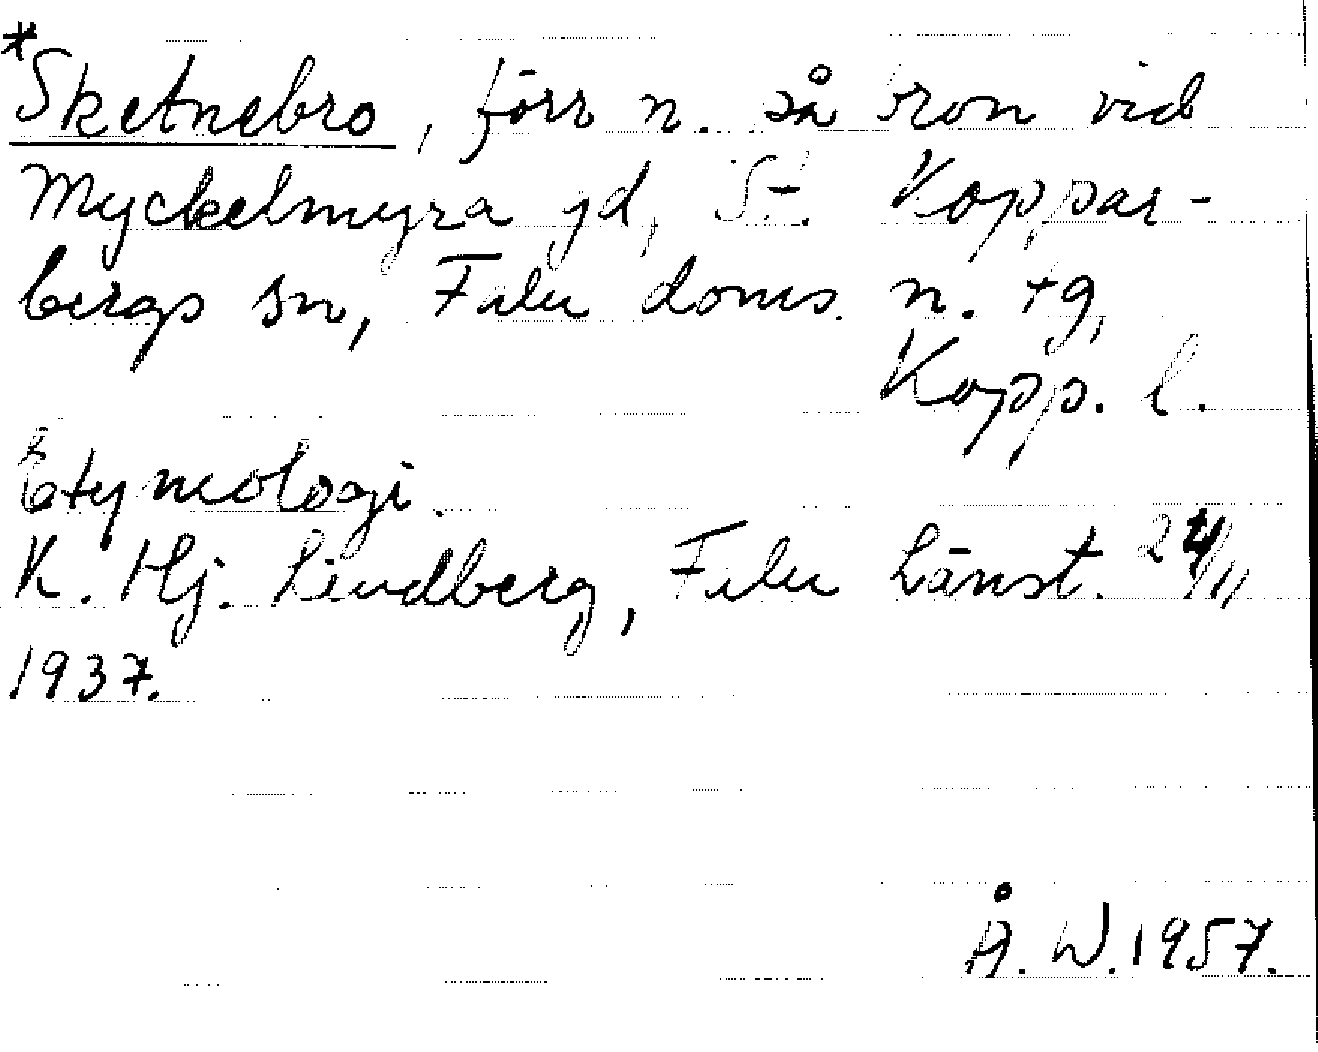 *Sketnebro, förr n. på bron vid
Myckelmyra gd, St. Koppar-
bergs sn, Falu doms. n. tg,
Kopp. l.
Etymologi.
K. Hj. Lindberg, Falu Länst. 24/11
1937.
Å. W. 1957.